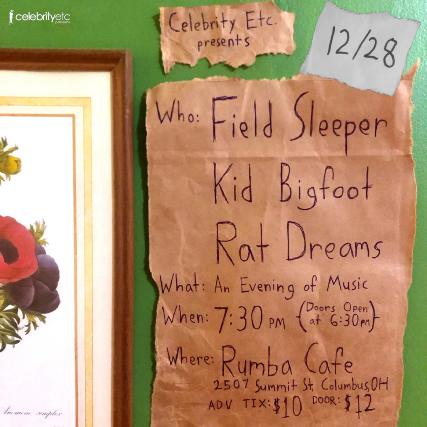 celebrityetc
Celebrity Etc.
presents
12/28
Who: Field Sleeper
Kid Bigfoot
Rat Dreams
What: An Evening of Music
When: 7:30 PM (Doors Open at 6:30PM)
Where: Rumba Cafe
2507 Summit St, Columbus, OH
ADV TIX: $10 DOOR: $12
Anemone simplex